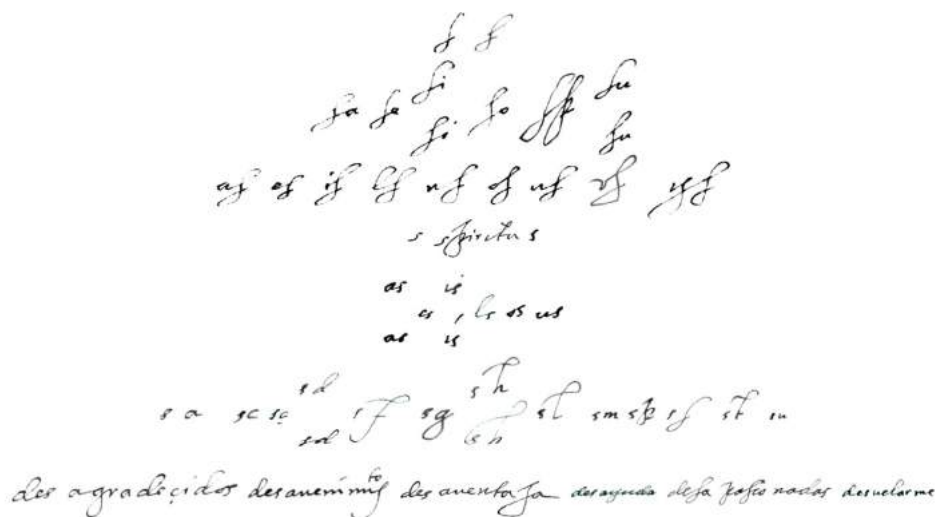 s s
si su
sa se so sp
si su
as es is ls ns os us rs ys s
s spiritus
as is
es , ls os us
as is
sd sh
s a sc sç sf sg sl sm sp ss st su
sd sh
des agradecidos desavenimi^to des aventaja desayuda desapasionadas desvelarme